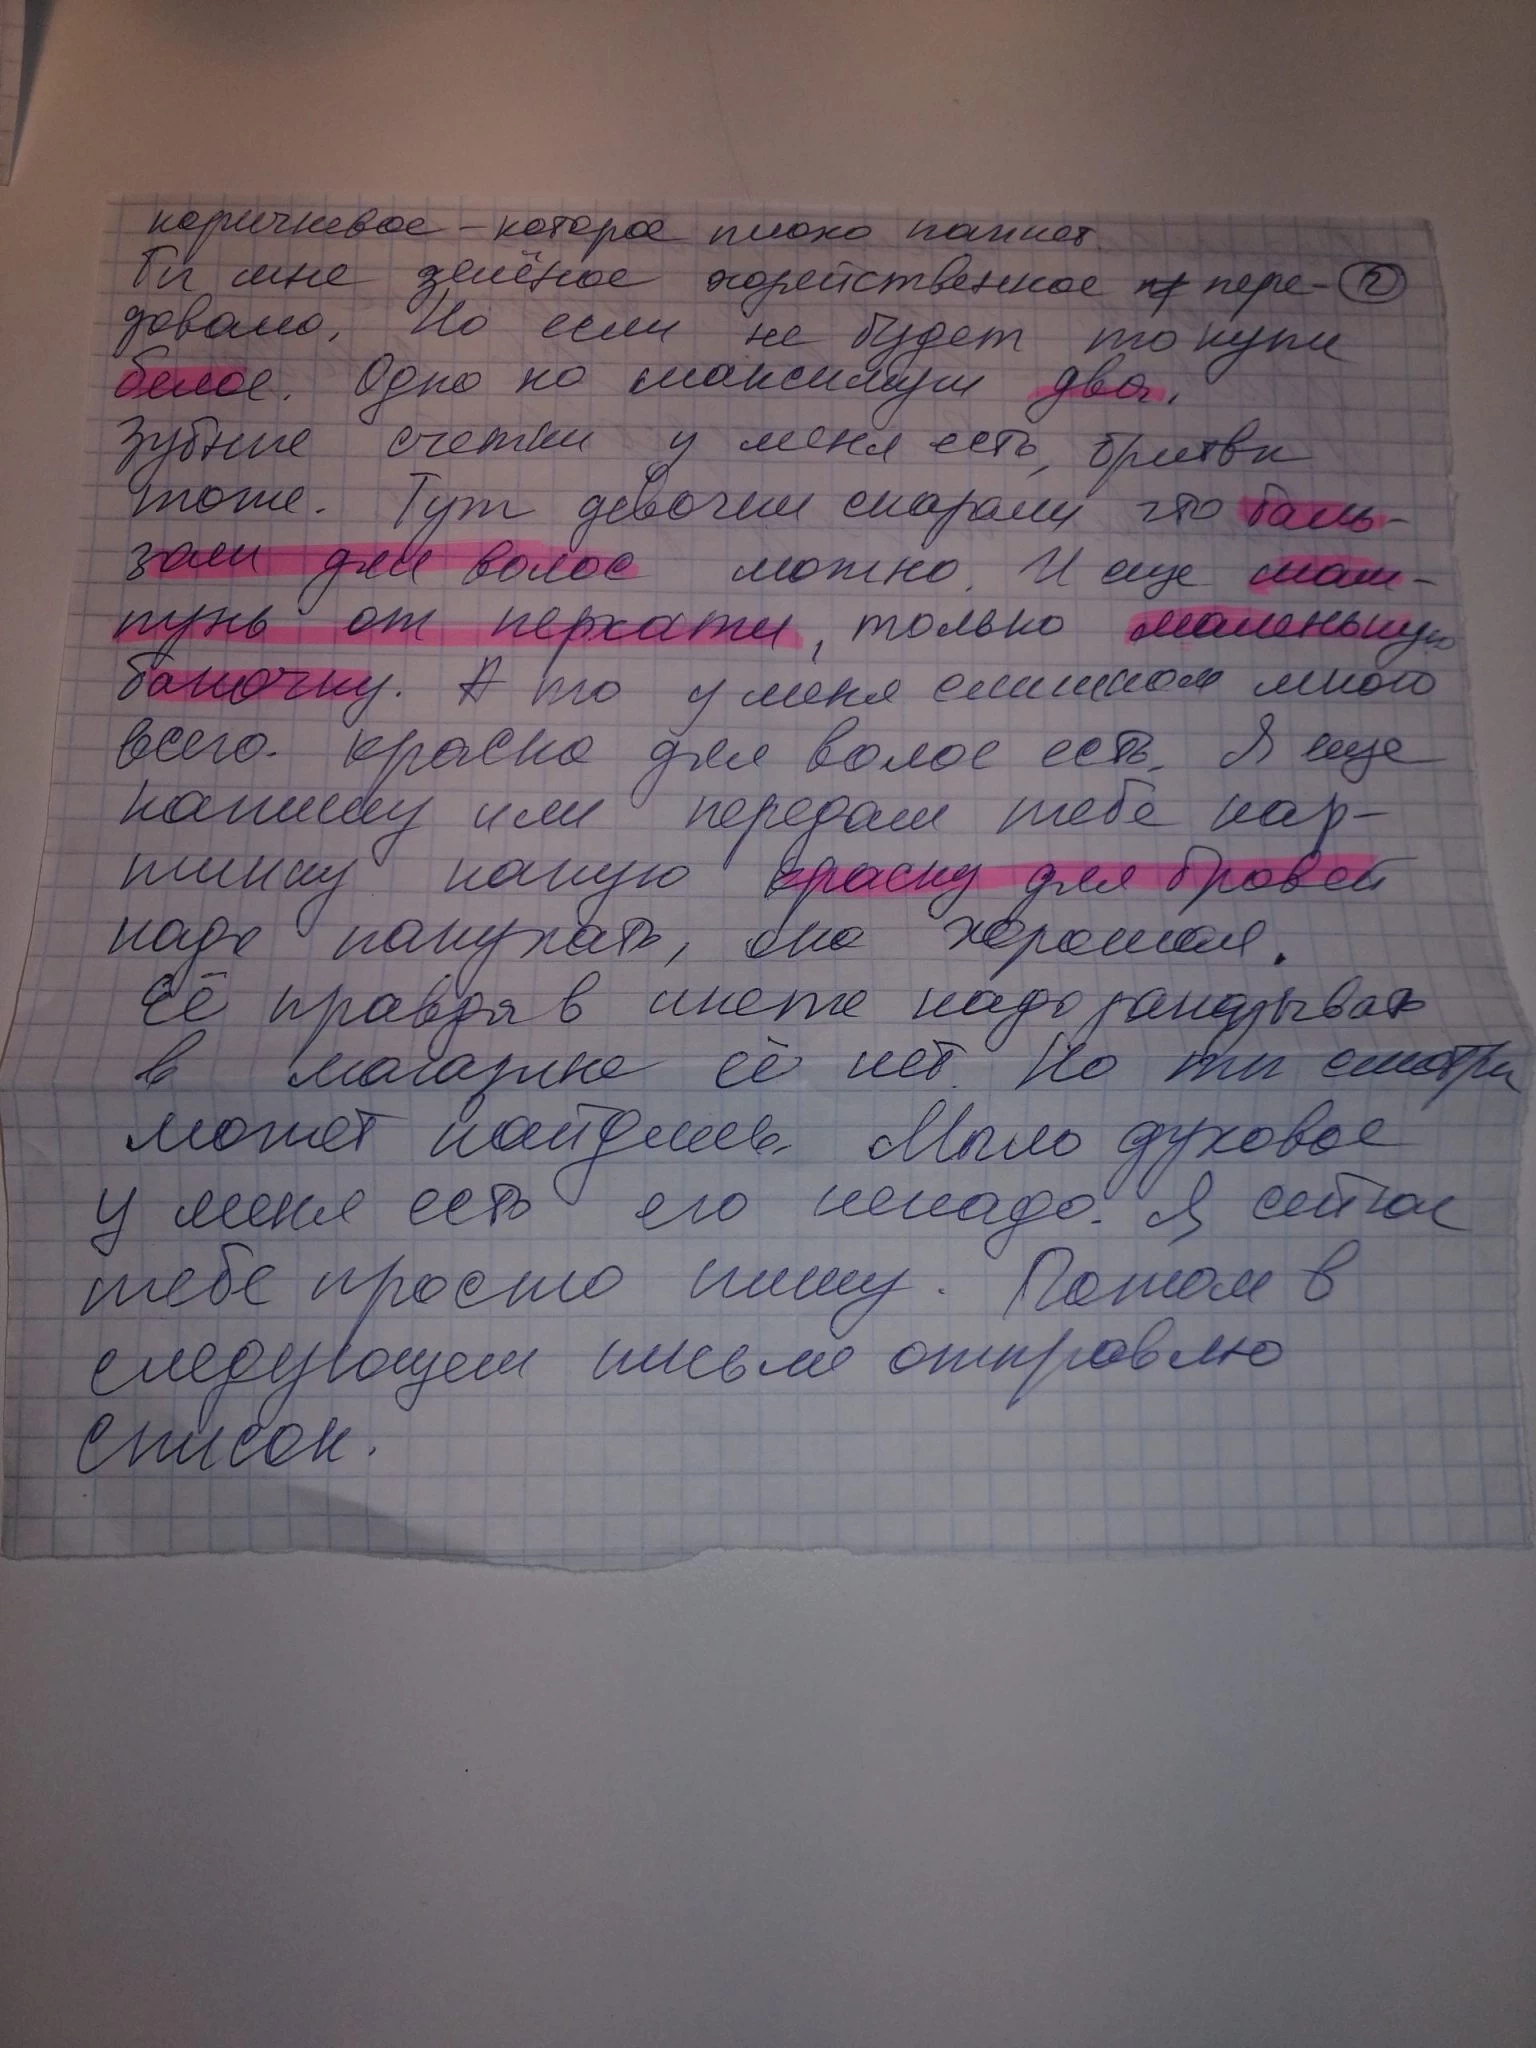 коричневое – которое плохо пахнет.
Ты мне зелёное хозяйственное пере- 2
довала. Но если не будет то купи
белое. Одно но максимум два.
Зубные счетки у меня есть, бритвы
тоже. Тут девочки сказали что баль-
зам для волос можно. И еще шам-
пунь от перхоти, только маленькую
баночку. А то у меня слишком много
всего. Краска для волос есть. Я еще
напишу или передам тебе кар-
тинку какую краску для бровей
надо покупать, она хорошая.
Её правда в инете надо заказывать
в магазине её нет. Но ты смотри
может найдешь. Мыло духовое
у меня есть его ненадо. Я сейчас
тебе просто пишу. Потом в
следующем письме отправлю
список.